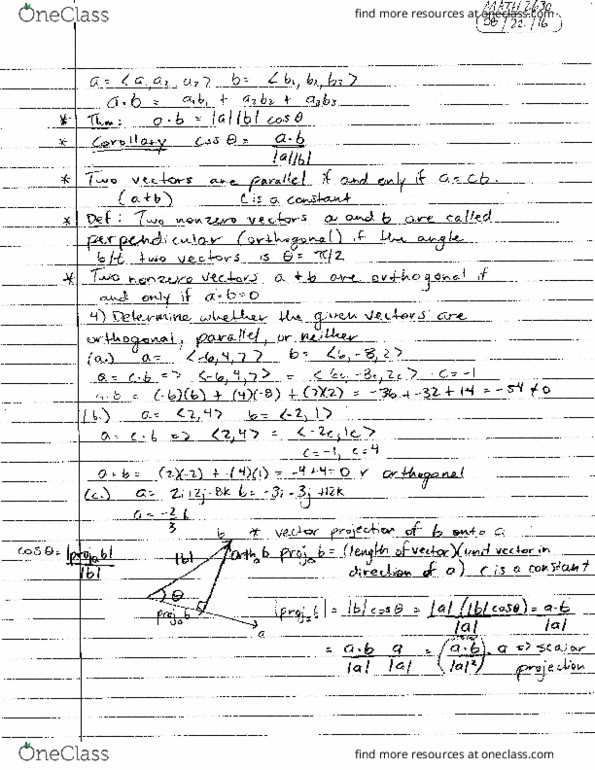 OneClass
find more resources at oneclass.com
MATH 2630
08/22/16
a = <a, a2, a3> b = <b1, b2, b3>
a·b = a1b1 + a2b2 + a3b3
* Thm: a·b = |a||b| cosθ
* Corollary cosθ = a·b
|a||b|
* Two vectors are parallel if and only if a=cb.
(a+b) c is a constant
* Def: Two nonzero vectors a and b are called
perpendicular (orthogonal) if the angle
b/t two vectors is θ = π/2
* Two nonzero vectors a + b are orthogonal if
and only if a·b=0
4) Determine whether the given vectors are
orthogonal, parallel, or neither
(a.) a = <-6,4,7> b = <6,-8,2>
a = c·b => <-6,4,7> = <6c,-8c,2c> c=-1
a·b = (-6)(6) + (4)(-8) + (7)(2) = -36 + -32 + 14 = -54 ≠ 0
(b.) a = <2,4> b = <-2,1>
a = c·b => <2,4> = <-2c,1c>
c=-1, c=4
a·b = (2)(-2) + (4)(1) = -4+4=0 orthogonal
(c.) a = 2i+2j-8k b = -3i-3j+12k
a = -2 b
3
b * vector projection of b onto a
cosθ = |proj_a b| |b| orth_a b proj_a b = (length of vector)(unit vector in
|b| direction of a) c is a constant
θ
proj_a b |proj_a b| = |b| cosθ = |a| (|b| cosθ) = a·b
a |a| |a|
= a·b a = (a·b) · a => scalar
|a| |a| (|a|²) projection
OneClass
find more resources at oneclass.com